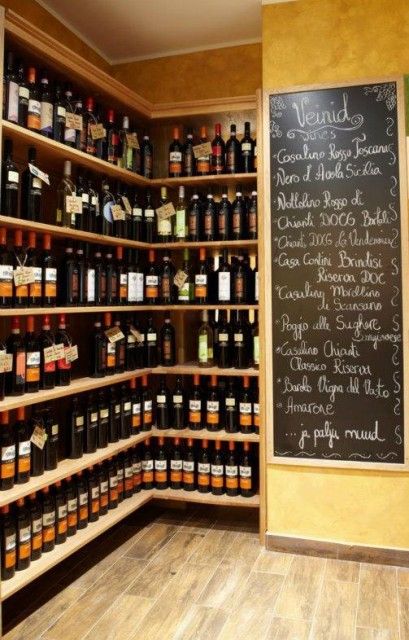 Veinid
wines
Casalino Rosso Toscana
Nero d'Avola Sicilia
Nottolino Rosso di
Chianti DOCG Bartali
Chianti DOCG La Vendemmia
Casa Contini Brindisi
Riserva DOC
Casalino Morellino
di Scansano
Poggio alle Sughere
Casalino Chianti
Classico Riserva
Barolo Vigna del Vasto
Amarone
...ja palju muud